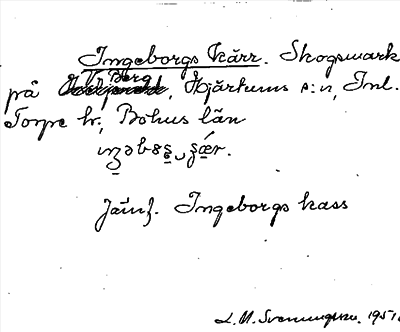 Ingeborgs Kärr. Skogsmark
på V:a Berg, Hjärtums s:n, Inl.
Torpe hd., Bohus län
Jämf. Ingeborgs kass
L. M. Svenungsson. 1951.